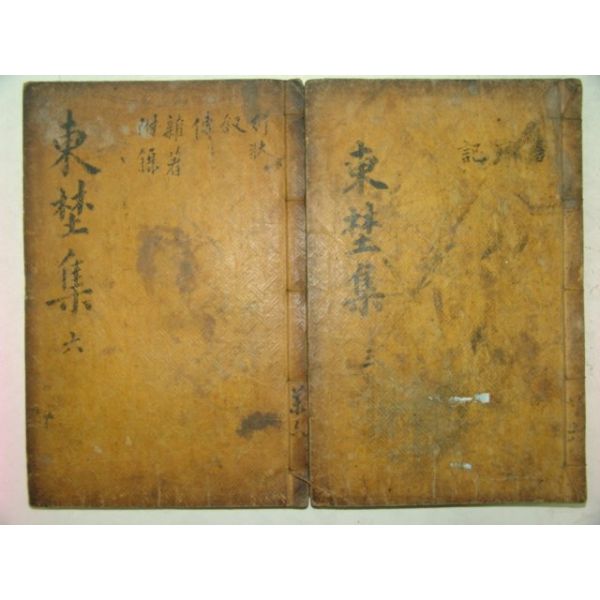 記
東埜集 三
行狀
叙
傳
雜著
附錄
東埜集 六